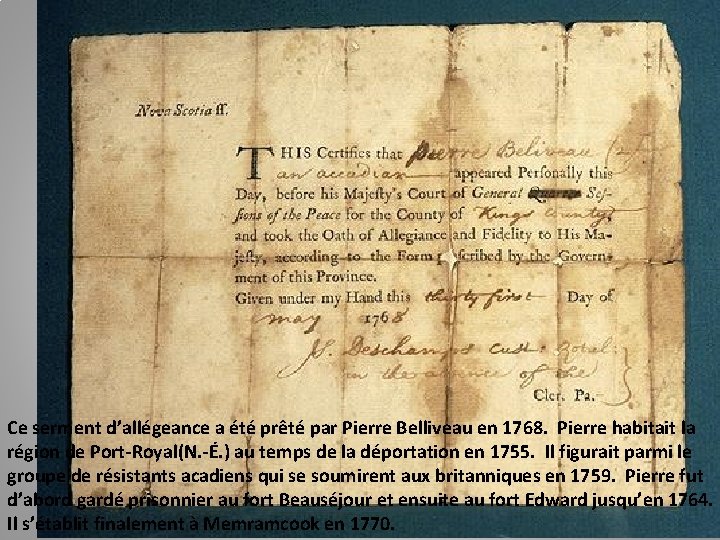 Nova Scotia ſſ.
THIS Certifies that Pierre Beliveau (2)
an accadian appeared Perſonally this
Day, before his Majeſty's Court of General Quarter Seſ-
ſions of the Peace for the County of Kings County
and took the Oath of Allegiance and Fidelity to His Ma-
jeſty, according to the Form ſcribed by the Govern-
ment of this Province.
Given under my Hand this thirty first Day of
may 1768
J. Deschamps Cust. Rotul.
in the absence of the
Cler. Pa.
Ce serment d’allégeance a été prêté par Pierre Belliveau en 1768. Pierre habitait la
région de Port-Royal(N.-É.) au temps de la déportation en 1755. Il figurait parmi le
groupe de résistants acadiens qui se soumirent aux britanniques en 1759. Pierre fut
d’abord gardé prisonnier au fort Beauséjour et ensuite au fort Edward jusqu’en 1764.
Il s’établit finalement à Memramcook en 1770.